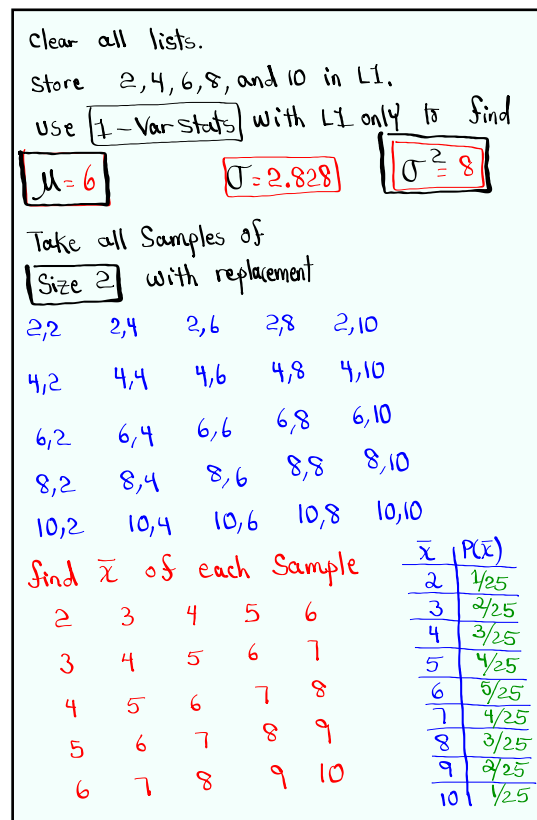 Clear all lists.
Store 2, 4, 6, 8, and 10 in L1.
Use 1-Var Stats with L1 only to find
μ = 6 σ = 2.828 σ² = 8
Take all Samples of
Size 2 with replacement
2,2 2,4 2,6 2,8 2,10
4,2 4,4 4,6 4,8 4,10
6,2 6,4 6,6 6,8 6,10
8,2 8,4 8,6 8,8 8,10
10,2 10,4 10,6 10,8 10,10
find x̄ of each Sample
2 3 4 5 6
3 4 5 6 7
4 5 6 7 8
5 6 7 8 9
6 7 8 9 10
x̄ P(x̄)
2 1/25
3 2/25
4 3/25
5 4/25
6 5/25
7 4/25
8 3/25
9 2/25
10 1/25